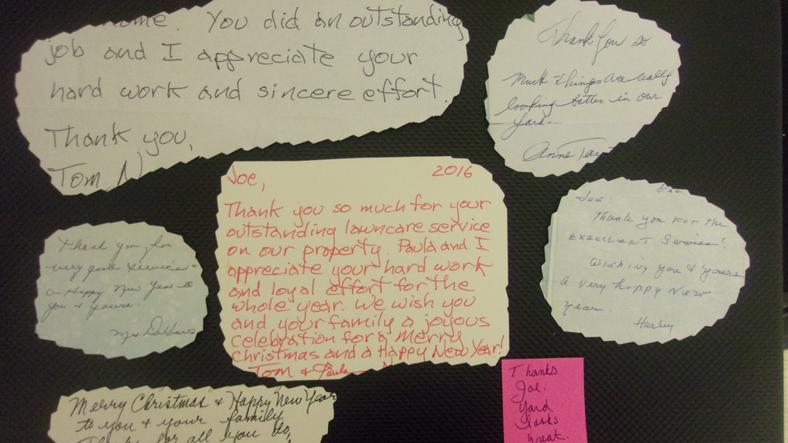 home. You did an outstanding
job and I appreciate your
hard work and sincere effort.
Thank you,
Tom N
Thank You so
Much things are really
looking better in our
yard.
Anne
Joe, 2016
Thank you so much for your
outstanding lawncare service
on our property. Paula and I
appreciate your hard work
and loyal effort for the
whole year. We wish you
and your family a joyous
celebration for a Merry
Christmas and a Happy New Year!
Tom & Paula N
Thank you for
very good service &
a Happy New Year to
you & yours.
Mrs
Joe
Thank you for the
Excellent Service!
Wishing you & yours
a very happy New
Year
Harley
Merry Christmas & Happy New Year
to you & your family
Thanks for all you do,
Thanks
Joe.
Yard
looks
Great.